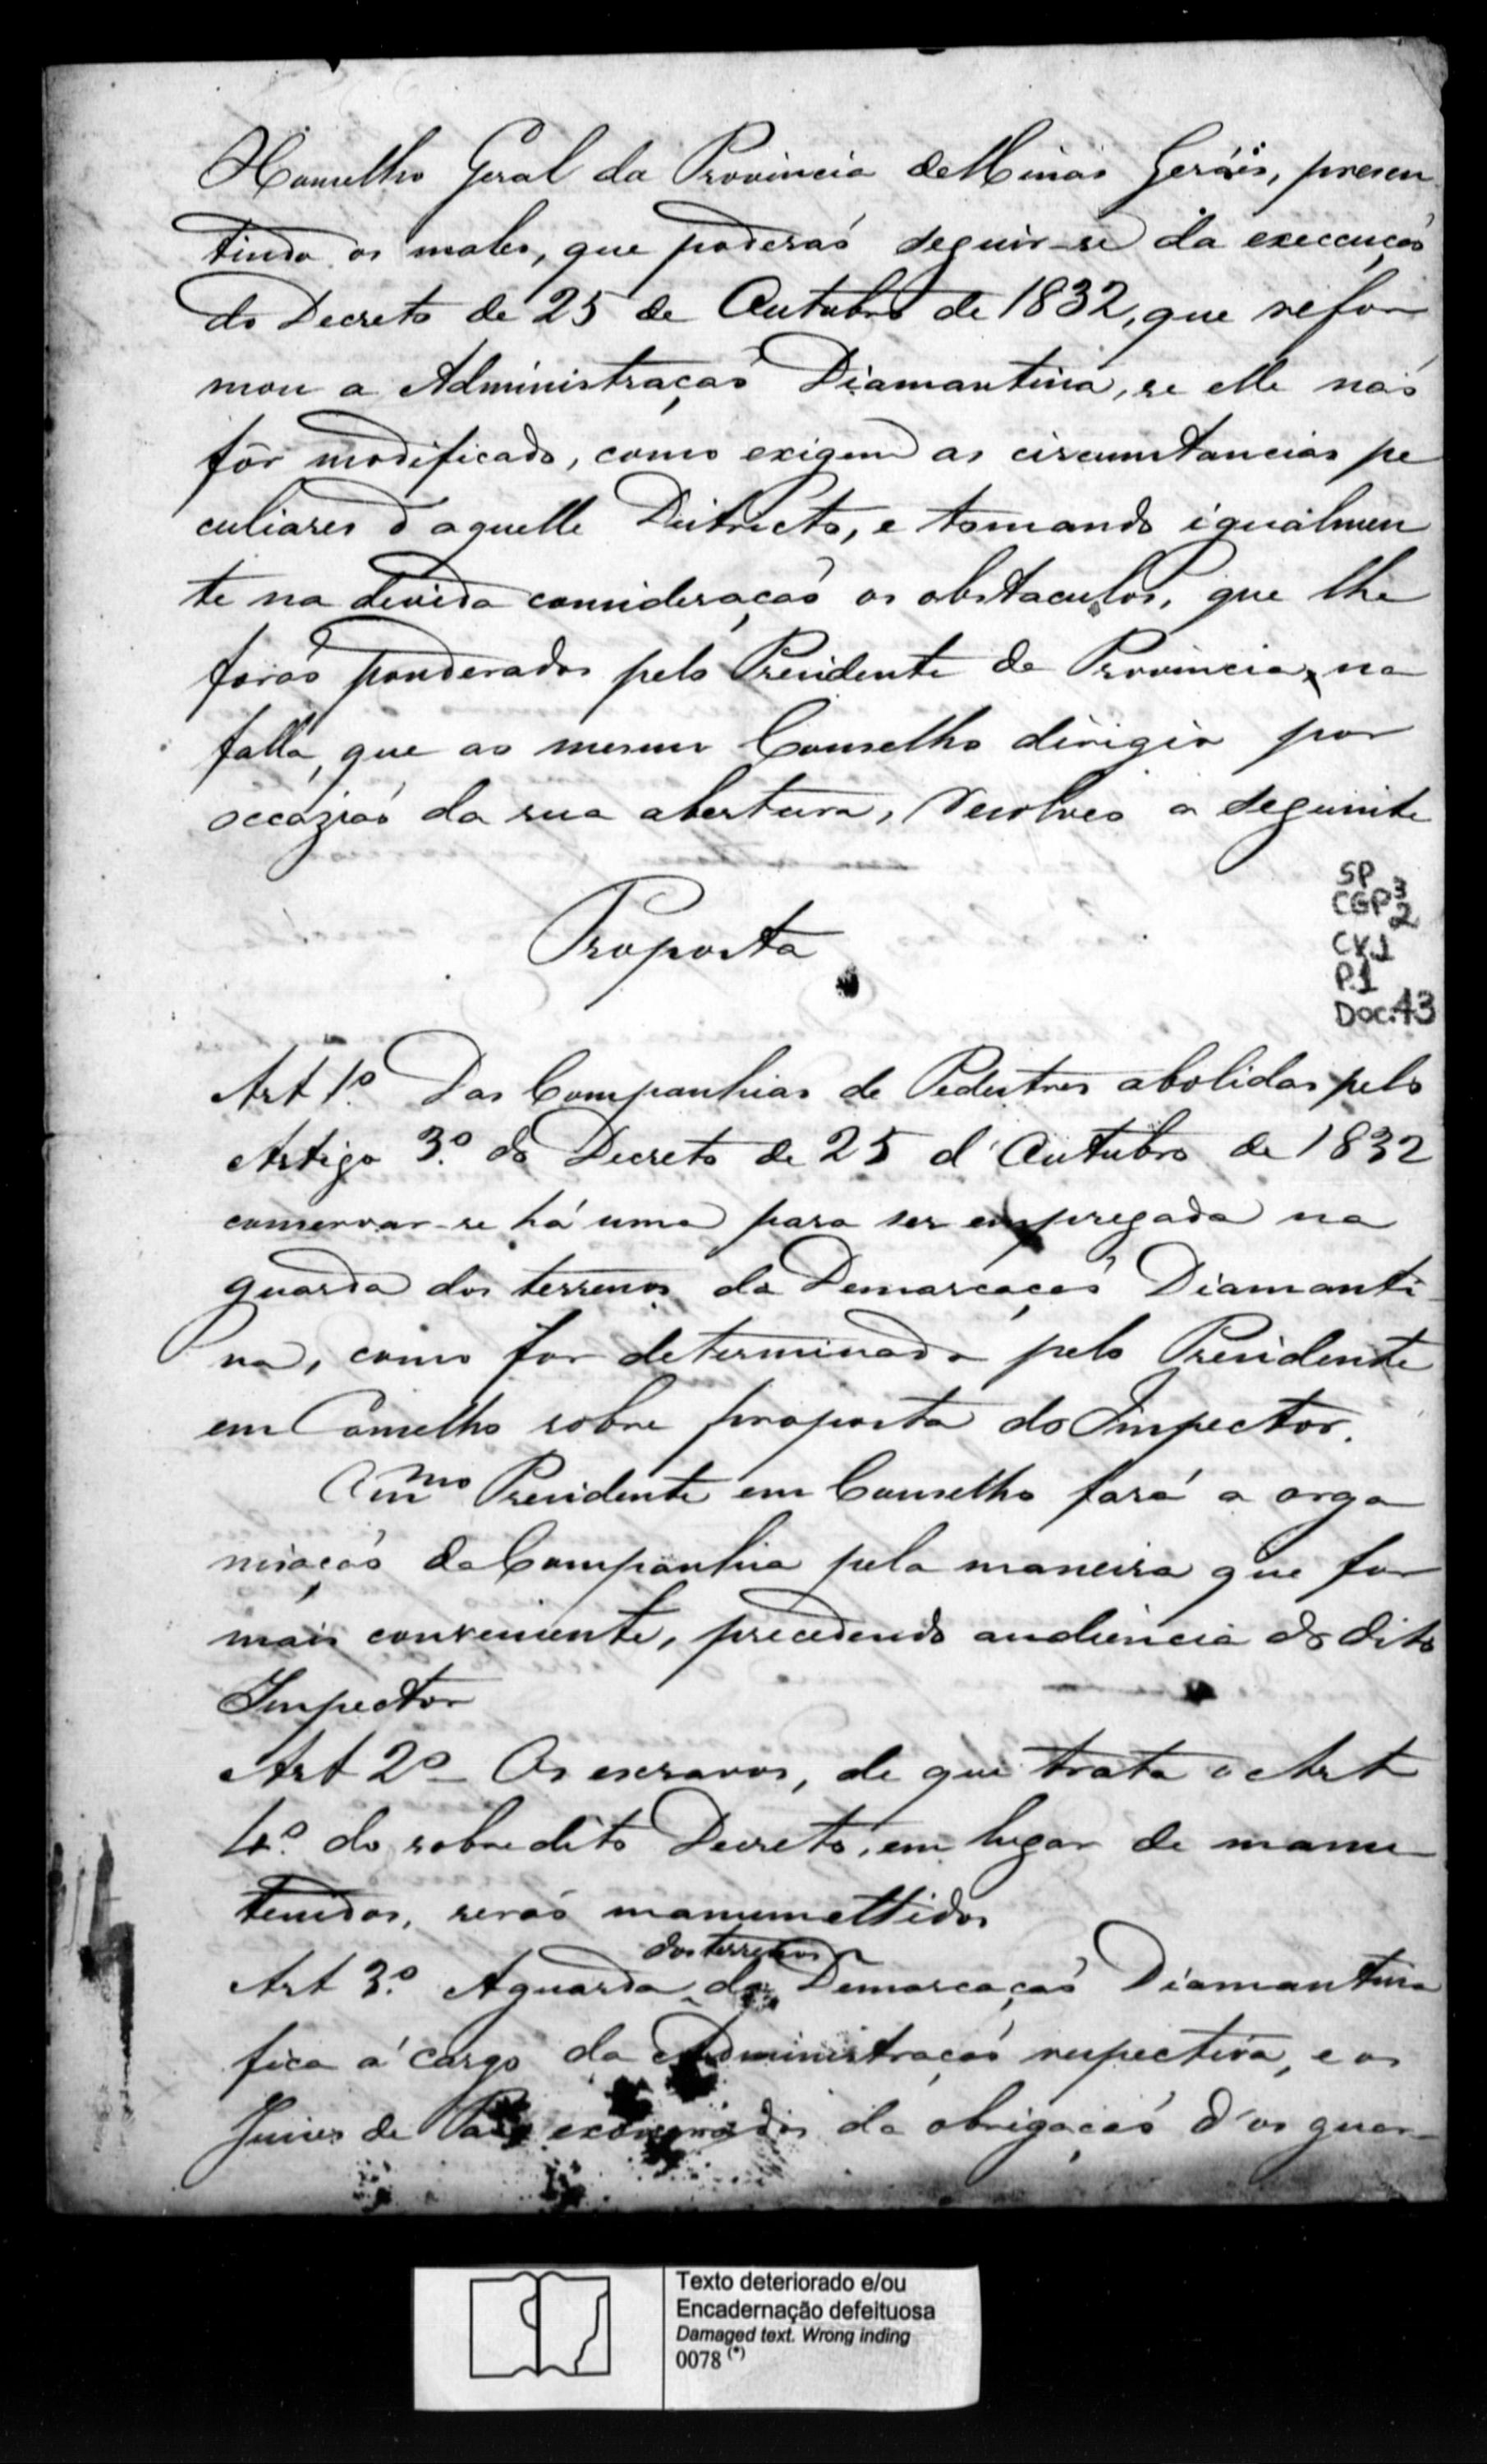 O Conselho Geral da Provincia de Minas Geráis, presen
tindo os males, que poderaó seguir-se da execuçaó
do Decreto de 25 de Outubro de 1832, que refor
mou a Administraçaó Diamantina, se elle naó
fôr modificado, como exigem as circumstancias pe
culiares d'aquelle Districto, e tomando igualmen
te na devida consideraçaó os obstaculos, que lhe
foraó ponderados pelo Presidente da Provincia, na
falla, que ao mesmo Conselho dirigio por
occaziaó da sua abertura, resolveo a seguinte
Proposta
SP
CGP 3
2
CX.1
P.1
Doc.43
Art 1.º Das Companhias de Pedestres abolidas pelo
Artigo 3.º do Decreto de 25 d'Outubro de 1832
conservar-se há uma para ser empregada na
guarda dos terrenos da Demarcaçaó Diamanti
na, como for determinado pelo Presidente
em Conselho sobre proposta do Inspector.
O m.mo Presidente em Conselho fará a orga
nisaçaó da Companhia pela maneira que for
mais conveniente, precedendo audiencia do dito
Inspector
Art 2º - Os escravos, de que trata o Art
4.º do sobredito Decreto, em lugar de manu
tenidos, seraó manumettidos
dos terrenos
Art 3.º A guarda da Demarcaçaó Diamantina
fica á cargo da Administraçaó respectiva, e os
Juises de Paz exonerados da obrigaçaó d'os guar-
Texto deteriorado e/ou
Encadernação defeituosa
Damaged text. Wrong inding
0078 (*)